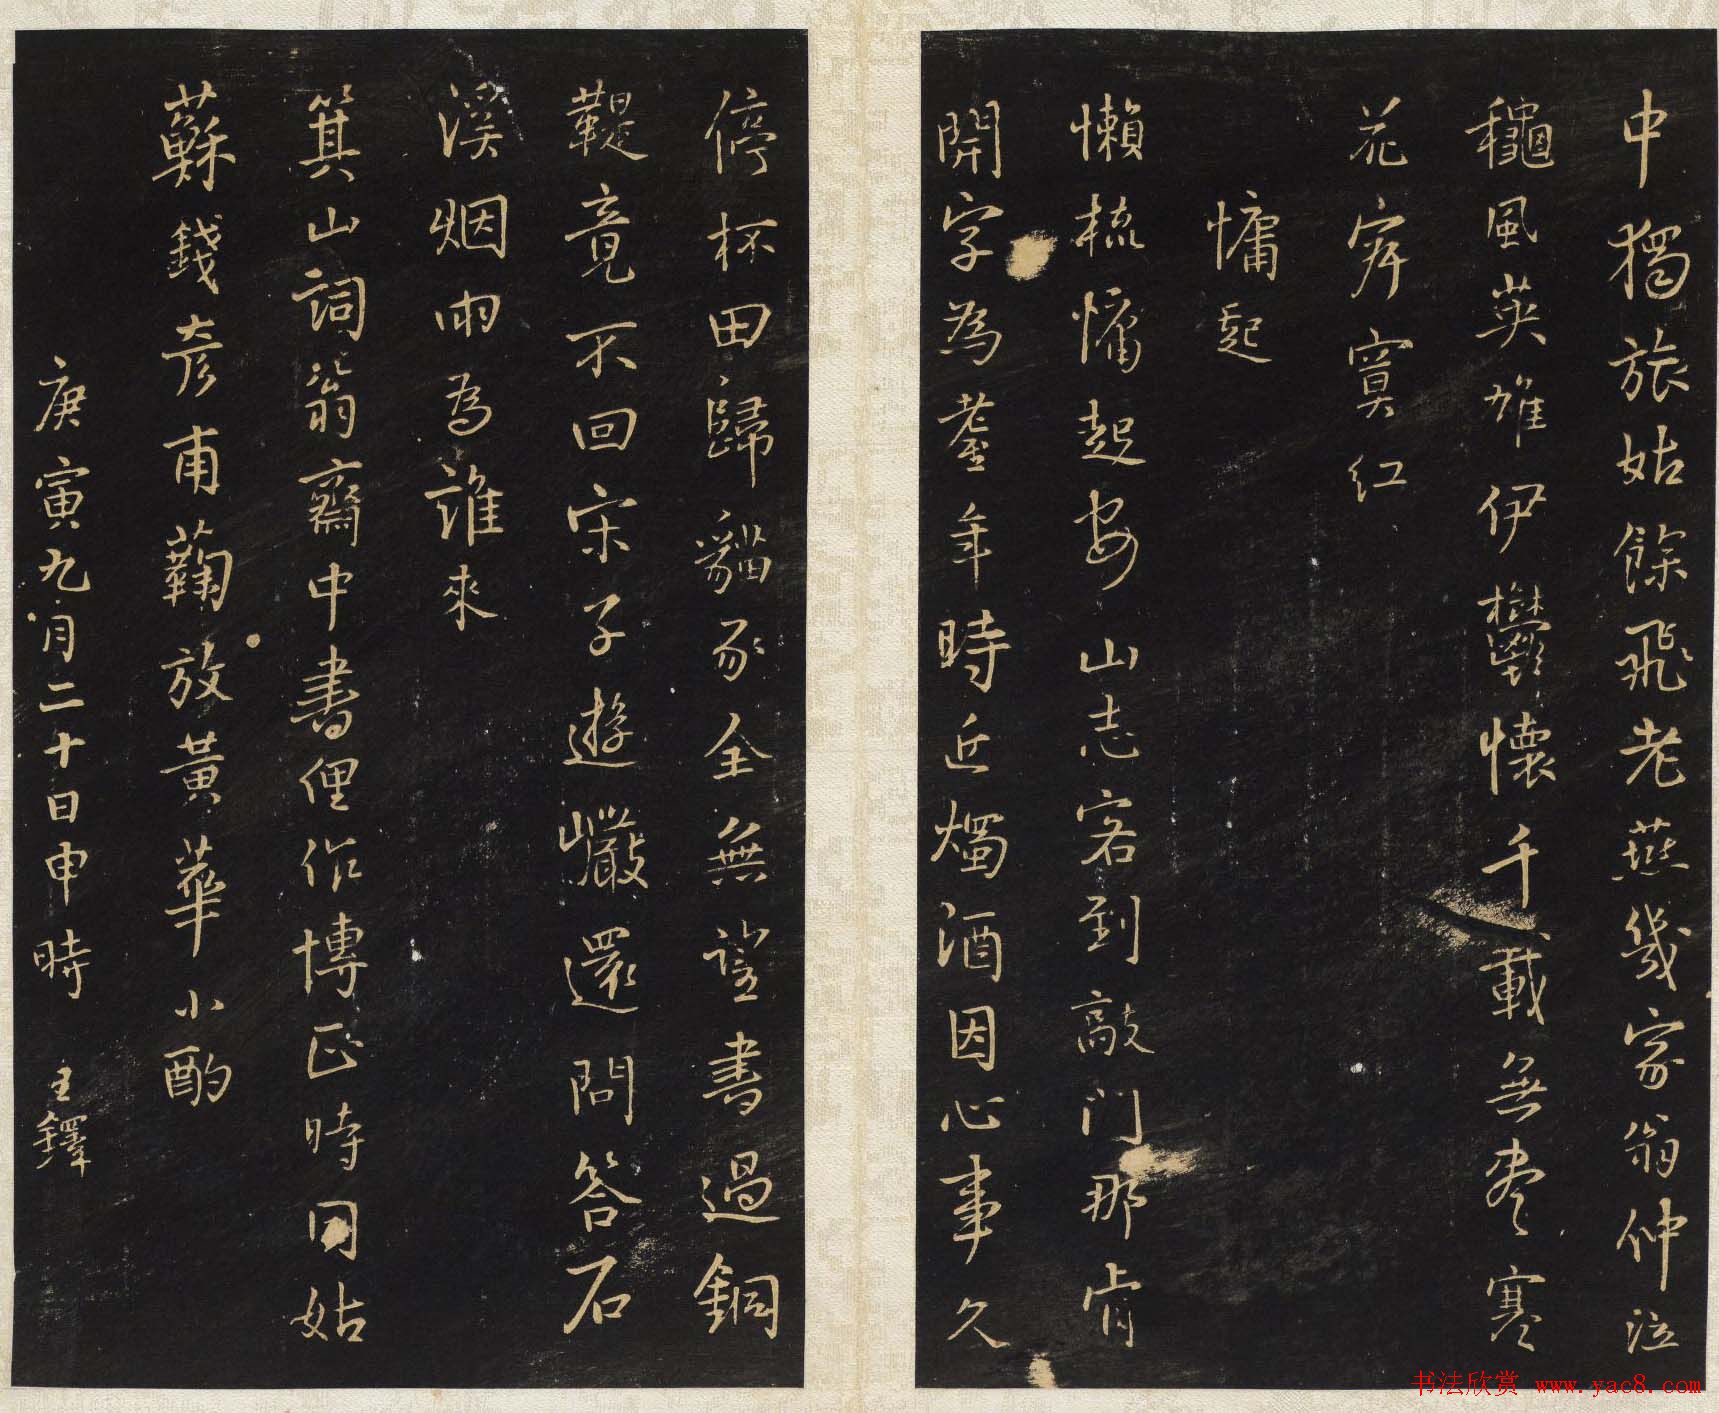 中獨旅姑餘飛老燕幾家翁仲泣
龝風英雄伊鬱懷千載無盡寒
花穽寞紅
慵起
懶梳慵起安山志客到敲門那肯
開字為耋年時近燭酒因心事久
停杯田歸貓豕全無證書過銅
鞮竟不回宋子遊巖還問答石
溪烟雨為誰來
箕山詞翁齋中書俚作博正時同姑
蘇錢彦甫蘜放黃華小酌
庚寅九月二十日申時 王鐸
书法欣赏 www.yac8.com